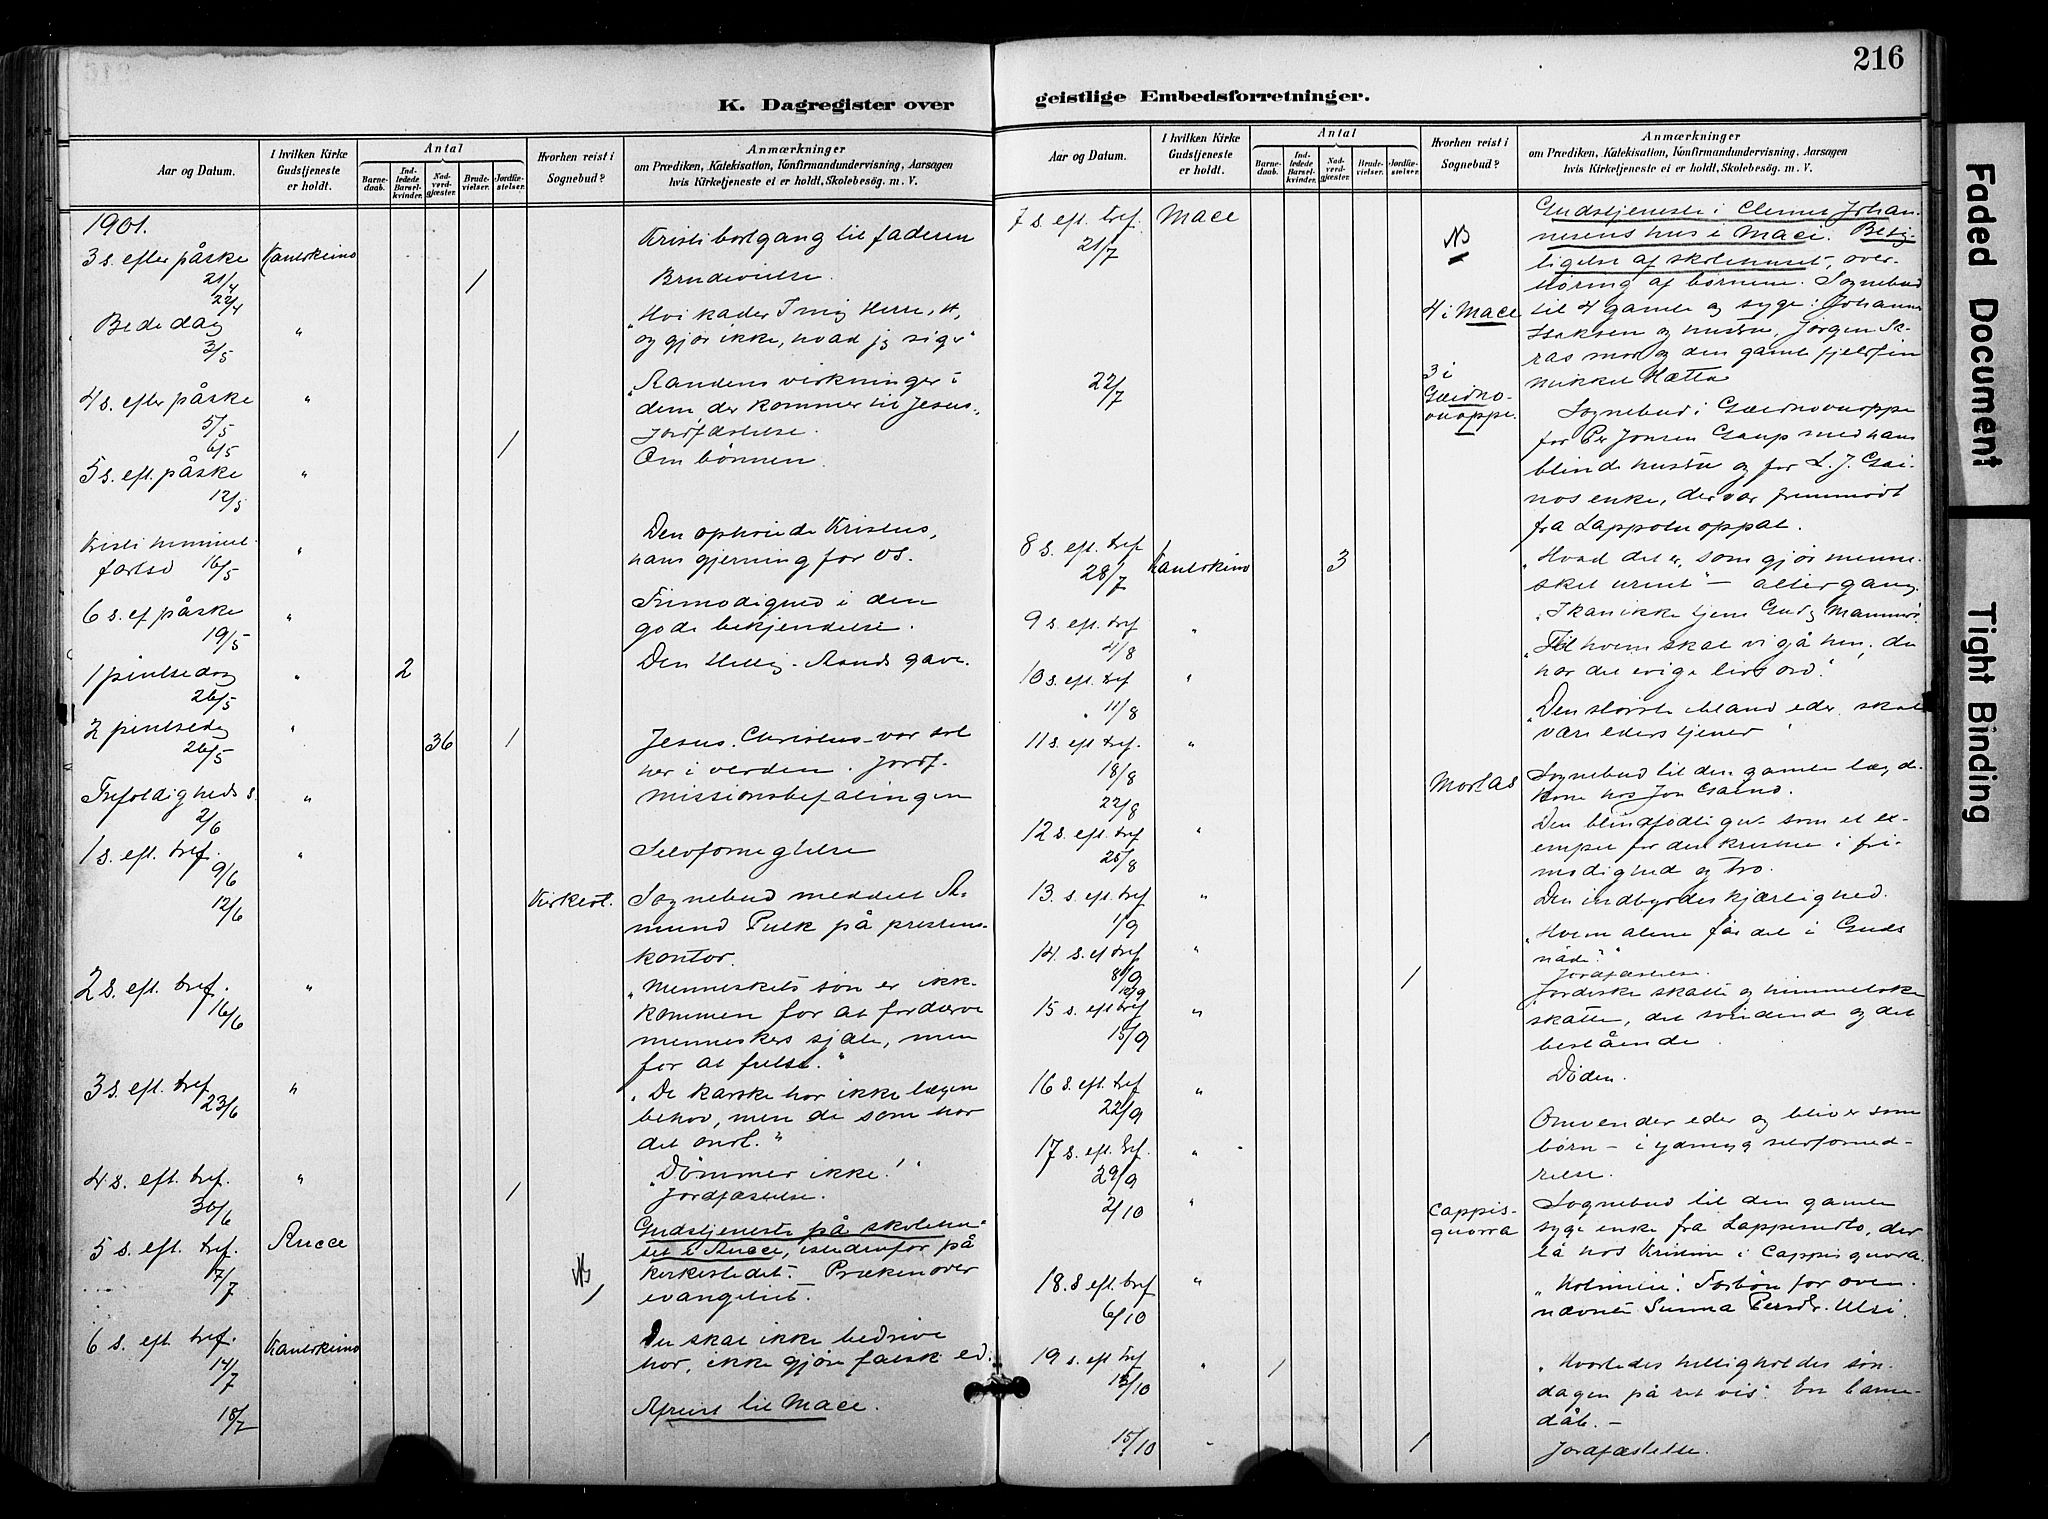 216
K. Dagregister over
Aar og Datum.
I hvilken Kirke Gudstjeneste er holdt.
Antal
Barnedaab.
Indledede Barselkvinder.
Nadverdgjæster.
Brudevielser.
Jordfæstelser.
Hvorhen reist i Sognebud?
Anmærkninger
om Prædiken, Katekisation, Konfirmandundervisning, Aarsagen
hvis Kirketjeneste ei er holdt, Skolebesøg. m. V.
1901.
3 s. efter påske Kautokeino Kristi bortgang til faderen
21/4 1 Brudevielse.
22/4
Bededag " "Hvi kalder I mig Herre, H,
3/5 og gjør ikke, hvad jeg siger"
Aandens virkninger i
4 s. efter påske " dem, der kommer til Jesus.
5/5 Jordfæstelse.
6/5 1 Om bønnen.
5 s. eft. påske "
12/5
Den ophøiede Kristus,
Kristi himmel- " hans gjerning for os.
fartsd 16/5
6 s. ef påske " Frimodighed i den
19/5 gode bekjendelse.
1 pintsedag " 2 Den Hellig-Aands gave.
26/5
2 pintsedag " 36 1 Jesus Christus var
26/5 her i verden. Jordf.
Trefoldigheds s. " missionsbefalingen
2/6
1 s. eft. tref. " Selvfornegtelse
9/6
12/6 Kirkest. Sognebud meddelt A-
mund Pulk på prestens
kontor.
2 s. eft. tref. " "Menneskets søn er ikke
16/6 kommen for at fordærve
menneskers sjæle, men
for at frelse."
3 s. eft. tref " "De karske har ikke lægen
23/6 behov, men de som har
det ondt."
4 s. eft. tref. " "Dømmer ikke!"
30/6 1 Jordfæstelse.
Gudstjeneste på skolehu-
5 s. eft. tref. Aucce set i Aucce, istedenfor på
7/7 NB kirkestedet. Præken over
evangeliet.
6 s. eft tref. Kautokeino Du skal ikke bedrive
14/7 hor, ikke gjøre falsk ed.
18/7 Afreist til Mace.
geistlige Embedsforretninger.
Aar og Datum.
I hvilken Kirke Gudstjeneste er holdt.
Antal
Barnedaab.
Indledede Barselkvinder.
Nadverdgjæster.
Brudevielser.
Jordfæstelser.
Hvorhen reist i Sognebud?
Anmærkninger
om Prædiken, Katekisation, Konfirmandundervisning, Aarsagen
hvis Kirketjeneste ei er holdt, Skolebesøg. m. V.
7 s. eft. tref. Mace Gudstjeneste i Clemet Johan-
21/7 NB nesens hus i Mace. Besig-
ligelse af skolehuset, over-
høring af børnene. Sognebud
4 i Mace til 4 gamle og syge: Johannes
Isaksen og hustru, Jørgen Sa-
ras mor og den gamle fjeldfin
22/7 3 i Mikkel Hætta
Gæidno- Sognebud i Gæidnovuoppe
vuoppe. for Per Jonsen Gaup med hans
blinde hustru og for L. J. Gai-
nos enke, der var fremmødt
fra Lappoluoppal.
8 s. eft. tref Kautokeino 3 "Hvad det er, som gjør menne-
28/7 sket urent" - altergang
9 s. eft. tref " "I kan ikke tjene Gud og Mammon"
4/8 "Til hvem skal vi gå hen, du
10 s. eft. tref " har det evige livs ord."
11/8 "Den største iblandt eder skal
11 s. eft tref. " være eders tjener"
18/8 Morlas Sognebud til den gamle
22/8 kone hos Jon
12 s. eft tref " Den blindfødte som et ex-
25/8 empel for den kristne i fri-
modighed og tro.
13. s. eft tref " Den indbyrdes kjærlighed.
1/9 "Hvem alene får del i Guds
14. s. ef tref " nåde?"
8/9 1 Jordfæstelse.
12/9 Jordiske skatte og himmelske
15 s. eft tref " skatte, det svindende og det
15/9 bestående.
16 s. eft. tref " Døden.
22/9 Omvender eder og bliver som
17 s. eft. tref. " børn - i ydmyg selvforned-
29/9 relse.
2/10 " Cappis- Sognebud til den gamle
guorra syge enke fra Lappoluobo, der
lå hos Kristine i Cappisguora.
18. s eft. tref " Forbøn for oven-
6/10 nævnte Sunna Persdr. Utsi.
19 s. eft tref " 1 "Hvorledes helligholdes søn-
13/10 dagen på ret vis". En barne-
dåb. -
15/10 " 1 Jordfæstelse.
Faded Document
Tight Binding